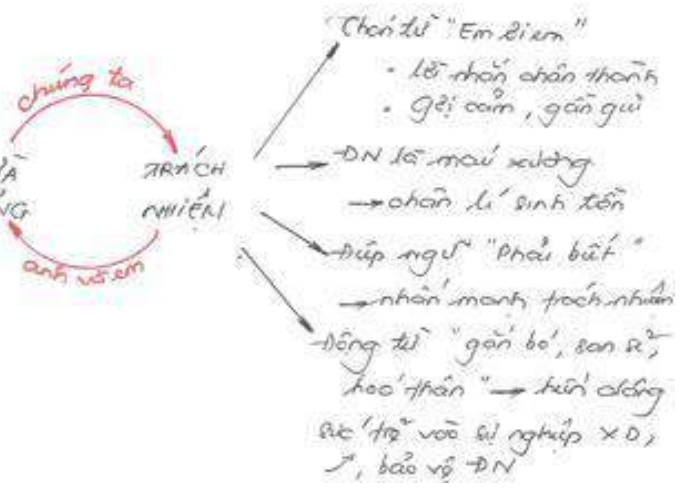 chúng ta
TRÁCH
NHIỆM
anh và em
Chân từ "Em ơi em"
• lời nhắn chân thành
• gợi cảm, gần gũi
ĐN là máu xương
→ chân lí sinh tồn
Điệp ngữ "Phải biết"
→ nhấn mạnh trách nhiệm
Động từ "gắn bó, san sẻ,
hoá thân" → hành động
sức trẻ vào sự nghiệp XD,
↗, bảo vệ ĐN